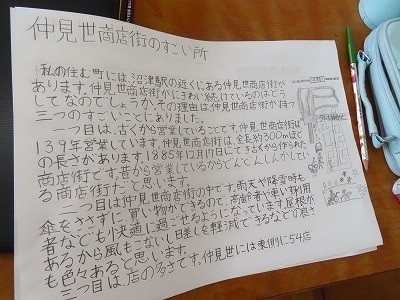 仲見世商店街のすごい所
私の住む町には、沼津駅の近くにある仲見世商店街が
あります。仲見世商店街がにぎわい続けているのはどう
してなのでしょうか。その理由は仲見世商店街が持つ
三つのすごいことにありました。
一つ目は、古くから営業していることです。仲見世商店街は
139年営業しています。仲見世商店街は、全長約300mほど
の長さがあります。1885年12月17日にできた古くから作られた
商店街です。昔から営業しているからどんどんしんかしてい
る商店街だと思います。
二つ目は仲見世商店街の中です。雨天や降雪時も
傘をささずに買い物ができるので、高齢者や車いす利用
者なども快適に過ごせるようになっています。屋根が
あるから風もこないし日差しを軽減できるなどの良さ
も色々あると思います。
三つ目は、店の多さです。仲見世には東側に54店